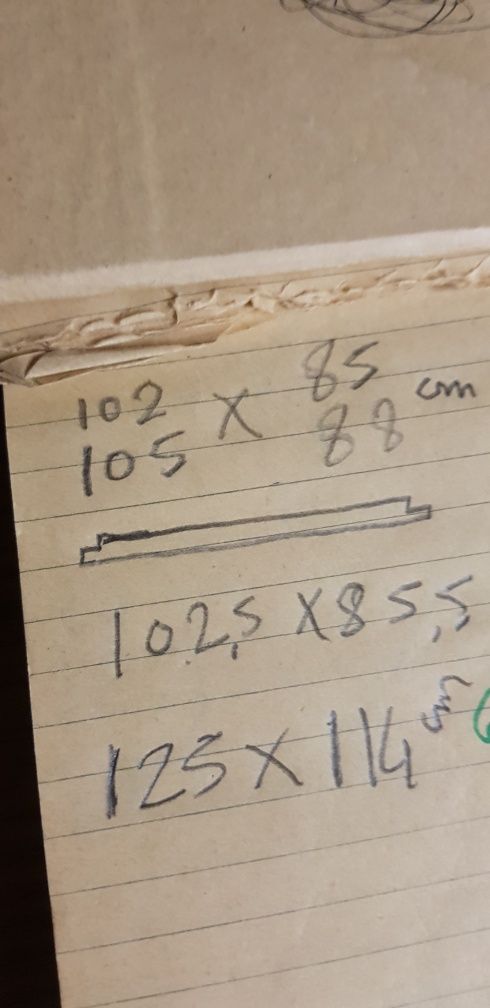 102 x 85 cm
105 88
102,5 x 85,5
125 x 114 cm